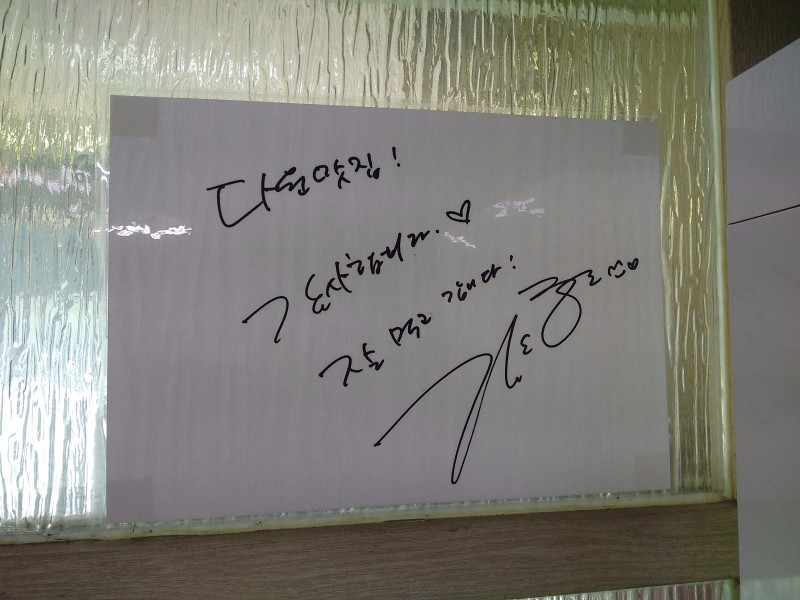 다원맛집!
감사합니다. ♡
잘 먹고 갑니다!